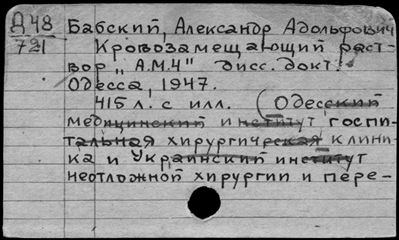 Д48 Бабский, Александр Адольфович
721 Кровозамещающий раст-
вор „А.М.4" дисс. докт.
Одесса, 1947.
415 л. с илл. (Одесский
медицинский институт госпи-
тальная хирургическая клини-
ка и Украинский институт
неотложной хирургии и пере-